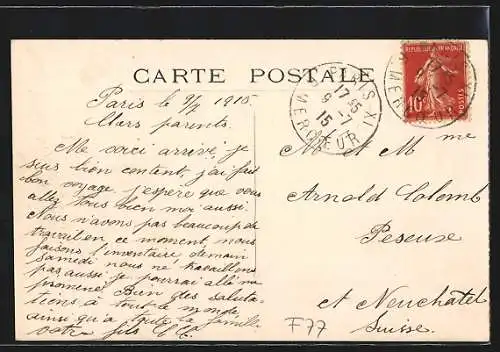 CARTE POSTALE
Paris le 9/7 1915
Chers parents.
Me voici arrivé, je
suis bien content, j'ai fait
bon voyage. j'espère que vous
allez tous bien moi aussi.
Nous n'avons pas beaucoup de
travail en ce moment, nous
faisons l'inventaire, demain
samedi nous ne travaillons
pas aussi je pourrai allé me
promener. Bien des saluta-
tions à tout le monde,
ainsi qu'a toute la famille.
votre fils
PARIS XI
17 35
9 -7
15
REPUBLIQUE FRANCAISE
10
POSTES
M. et Mme
Arnold Colomb
Peseux
et Neuchâtel
Suisse.
F77